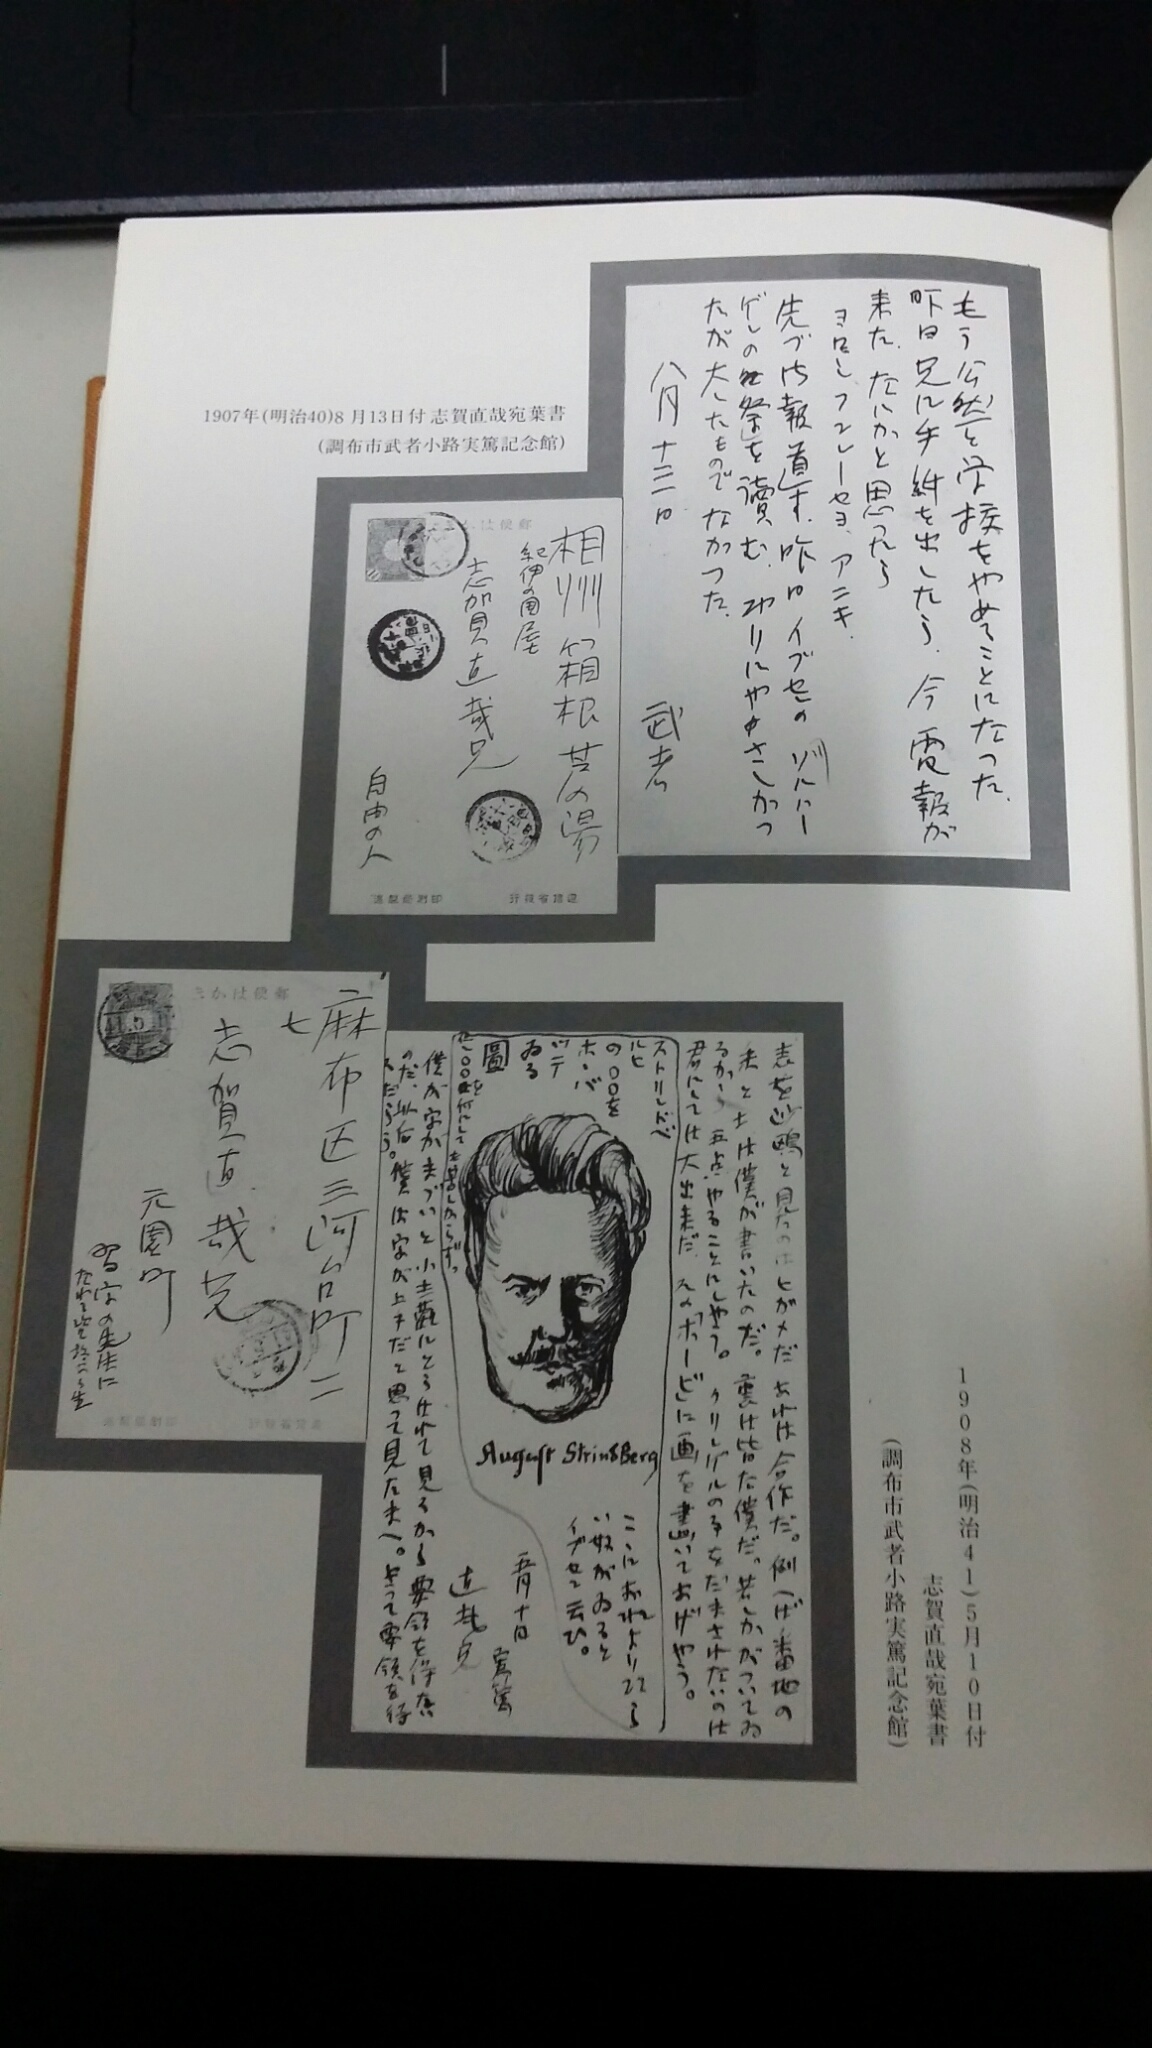 もう公然と学校をやめることになった、
昨日兄に手紙を出したら、今電報が
来た、なにかと思ったら
ヨロシ、フレーセヨ、アニキ、
先づ御報道す、昨日イブセンのゾルハー
ゲンの祭を讀む、わりにやさしかつ
たが大したものでなかつた、
八月十三日、
武者
1907年(明治40)8月13日付志賀直哉宛葉書
(調布市武者小路実篤記念館)
郵便はかき
相州箱根芦の湯
紀伊の国屋
志賀直哉兄
自由の人
逓信省発行
印刷局製造
郵便はかき
麻布区三河台町二
七
志賀直哉兄
元園町
習字の先生に
表を見たのはヒガメだ あれは合作だ。例へば番地の
は僕が書いたのだ。裏は皆な僕だっ 若しかがついてゐ
るから 五点やることにしやう。クリンゲルの事をだまされないのは
君にしては大出来だ そのホービに画を書いてあげやう。
ストリンドベ
ルヒ
の〇〇を
ホーバ
ッテ
ゐる
圖
August StrindBerg
ここにおれよりエラ
い奴がゐると
イブセン云ひ。
五月十日
実篤
直哉兄
僕が字がまづいと小主観にとらはれて見るから要領を得ない
のだ、此后僕は字が上手だと思って見たまへ。きつて要領を得
るだらう。
1908年(明治41)5月10日付
志賀直哉宛葉書
(調布市武者小路実篤記念館)